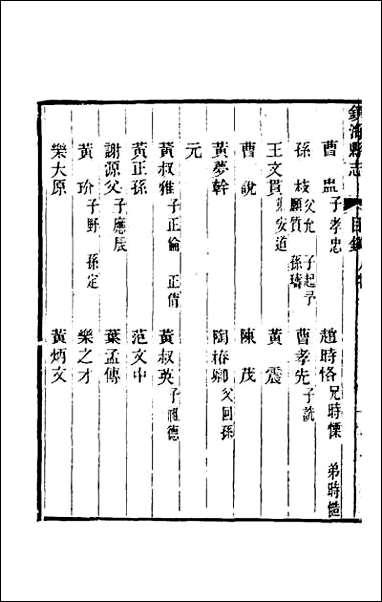 鎮海縣志 目錄 人物
曹 盅 子孝忠 趙時恪 兄時慄 弟時𢢼
孫 枝 父允 子起予 願質 孫璹 曹孝先 子說
王文貫 弟安道 黃 震
曹 說 陳 茂
黃夢幹 陶椿卿 父回孫
元
黃叔雅 子正倫 正倩 黃叔英 子祖德
黃正孫 范文中
謝源父 子應辰 葉孟傳
黃 玠 子野 孫定 樂之才
樂大原 黃炳文